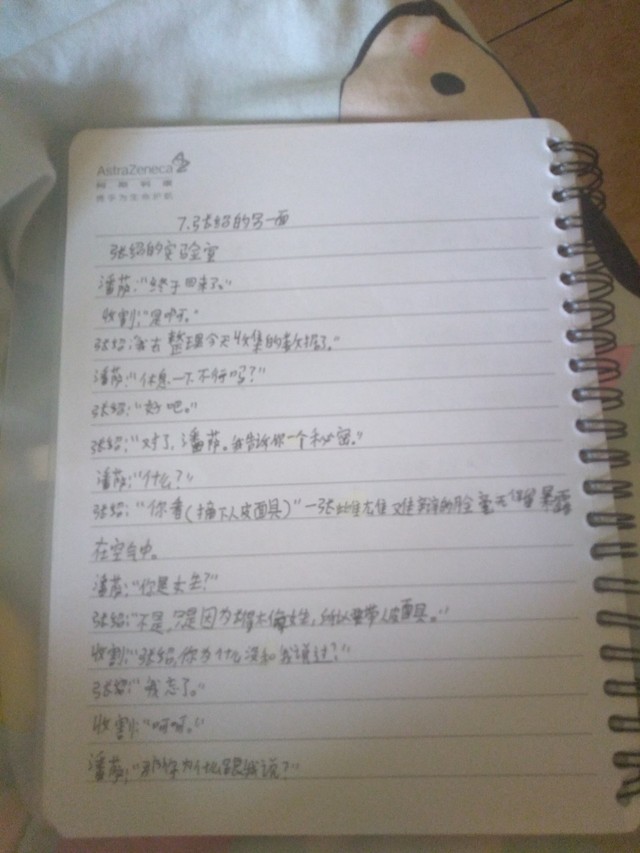 AstraZeneca
阿斯利康
携手为生命护航
7.张绍的另一面
张绍的实验室
潘萍:“终于回来了。”
收割:“是啊。”
张绍:“我去整理今天收集的数据了。”
潘萍:“休息一下不行吗?”
张绍:“好吧。”
张绍:“对了,潘萍。我告诉你一个秘密。”
潘萍:“什么?”
张绍:“你看(摘下人皮面具)”一张雌雄难辨的脸毫无保留暴露
在空气中。
潘萍:“你是女生?”
张绍:“不是,只是因为像女生,所以要带人皮面具。”
收割:“张绍,你为什么没和我说过?”
张绍:“我忘了。”
收割:“呵呵。”
潘萍:“那你为什么跟我说?”